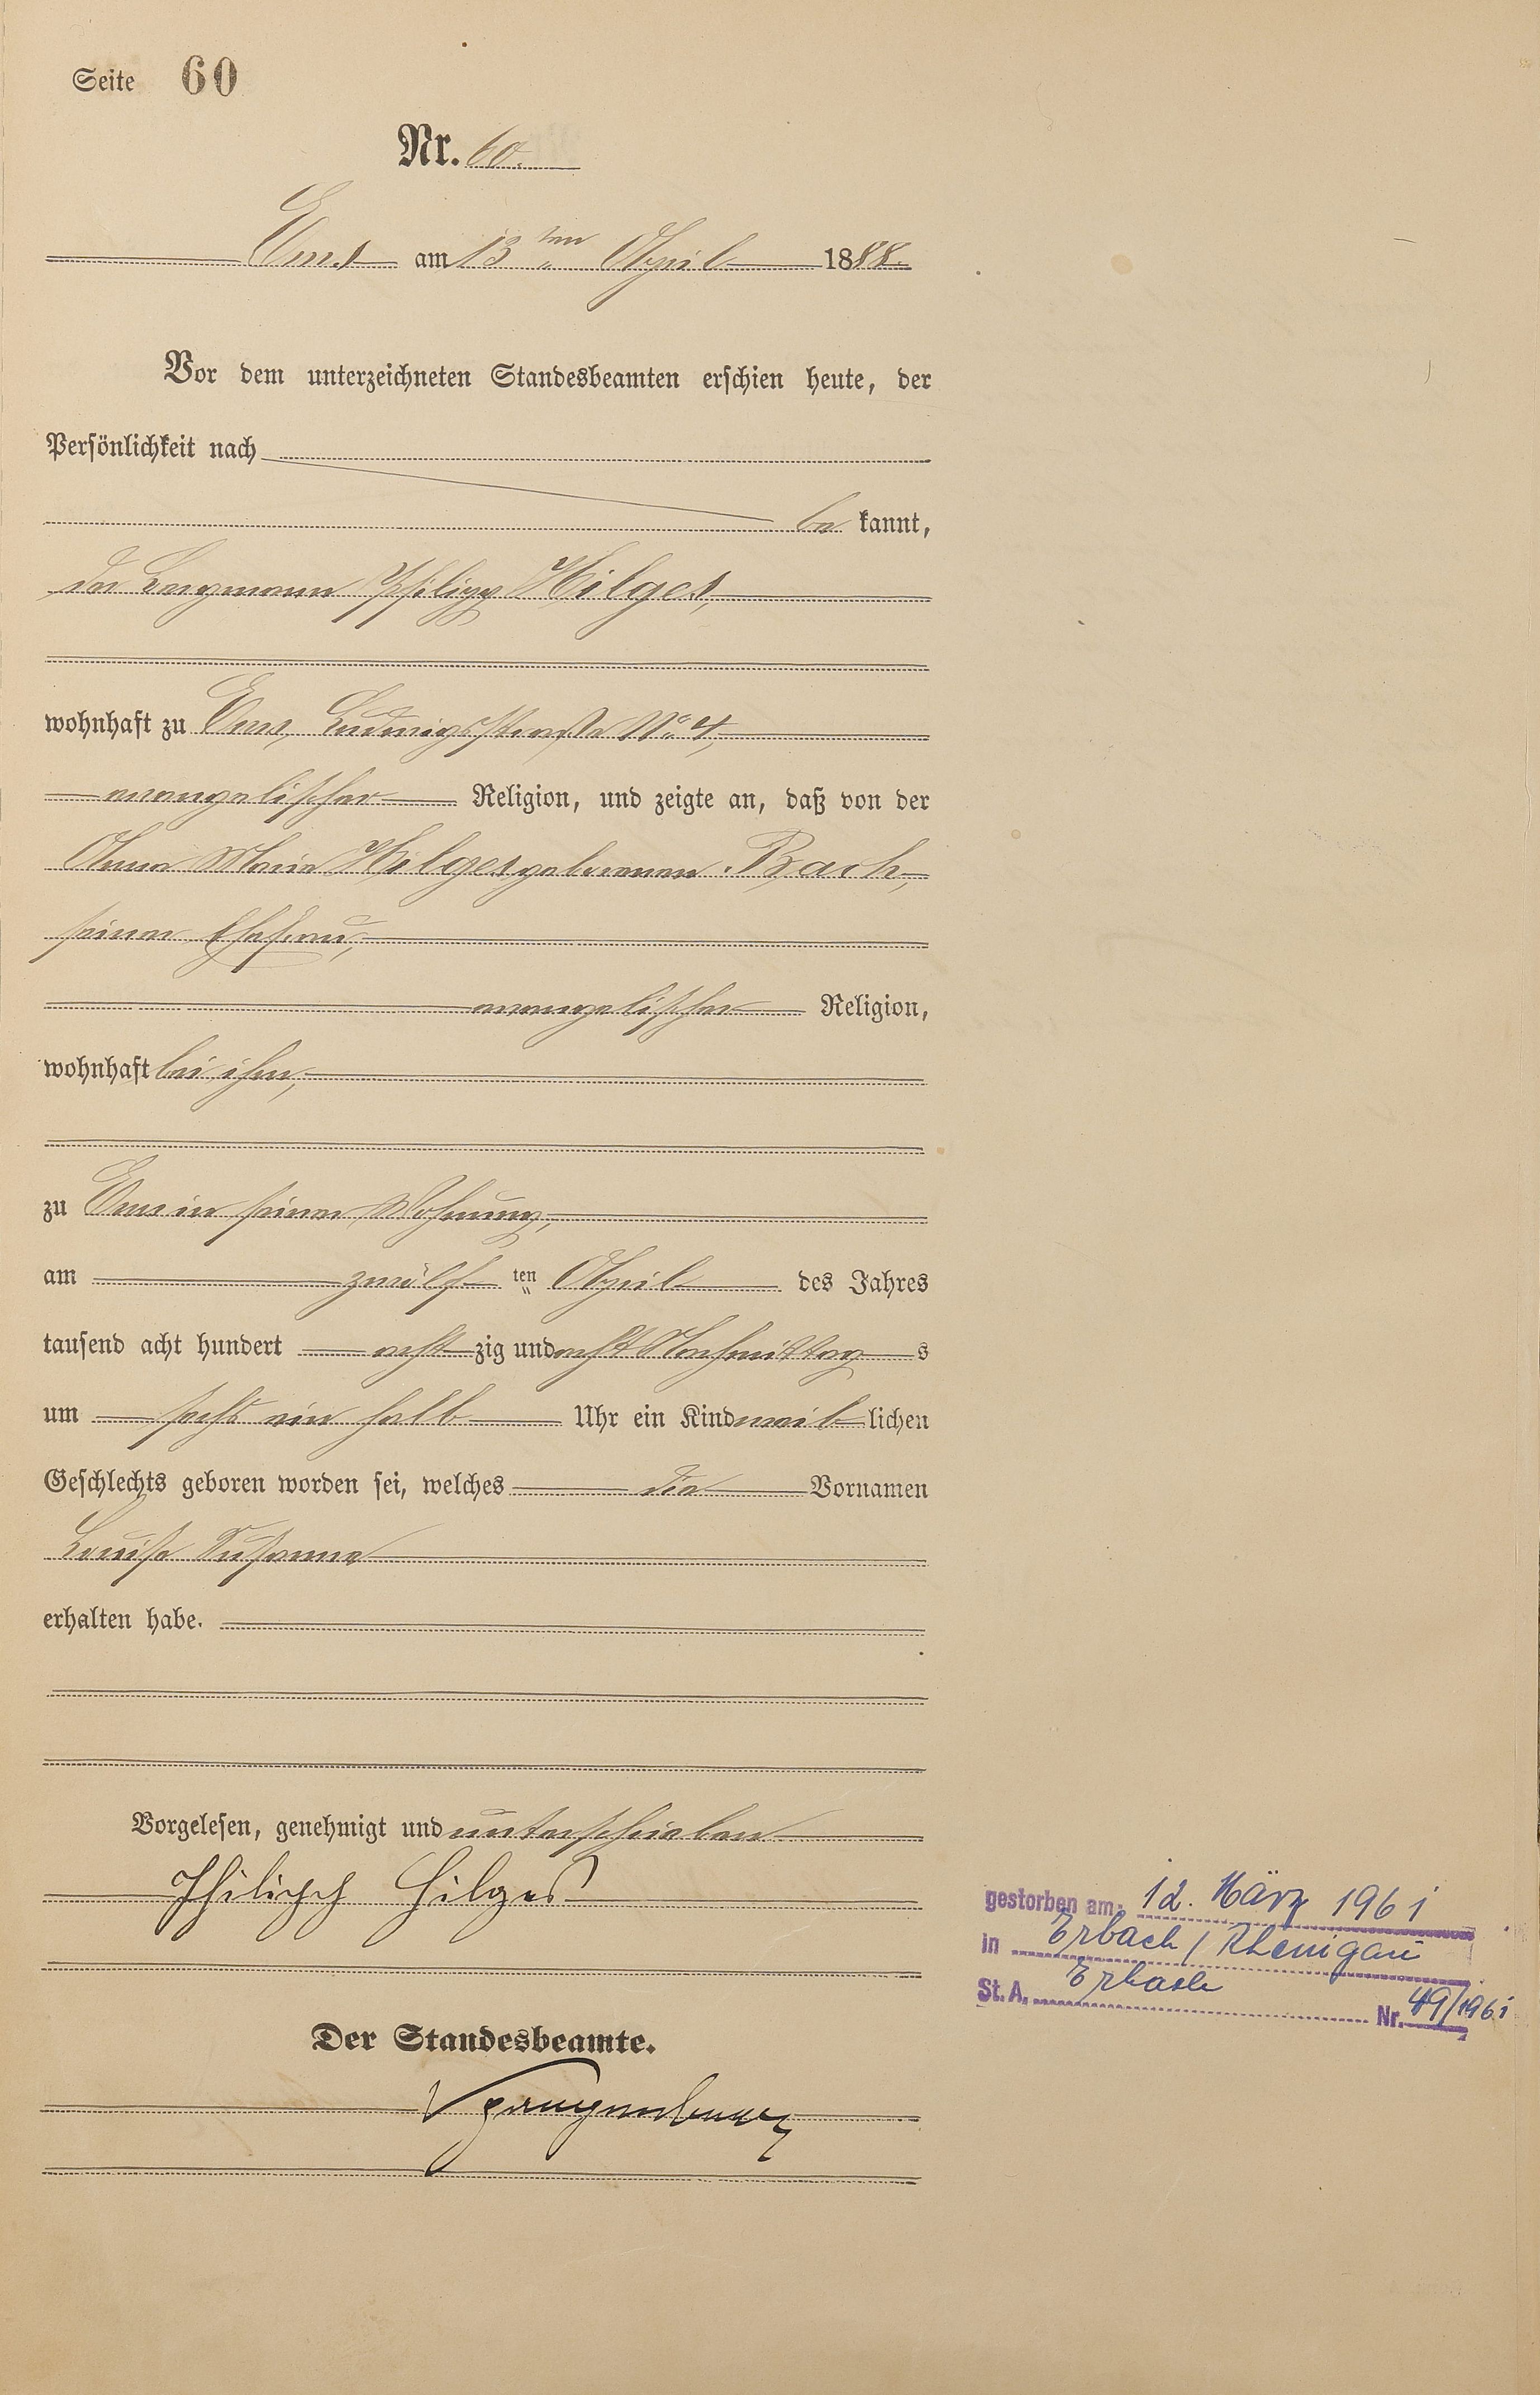 Seite 60
Nr. 60.
Ems am 13ten April 1888.
Vor dem unterzeichneten Standesbeamten erschien heute, der
Persönlichkeit nach
be kannt,
der Bergmann Philipp Hilges,
wohnhaft zu Ems, Ludwigsstraße No. 4,
evangelischer Religion, und zeigte an, daß von der
Anna Maria Hilges geborenen Bach,
seiner Ehefrau,
evangelischer Religion,
wohnhaft bei ihm,
zu Ems in seiner Wohnung,
am zwölf ten April des Jahres
tausend acht hundert acht zig und acht Nachmittag s
um sechs ein halb Uhr ein Kind weib lichen
Geschlechts geboren worden sei, welches die Vornamen
Louise Susanna
erhalten habe.
Vorgelesen, genehmigt und unterschrieben
Philipp Hilges
Der Standesbeamte.
gestorben am: 12. März 1961
in Erbach / Rheingau
St. A. Erbach Nr. 49/1961